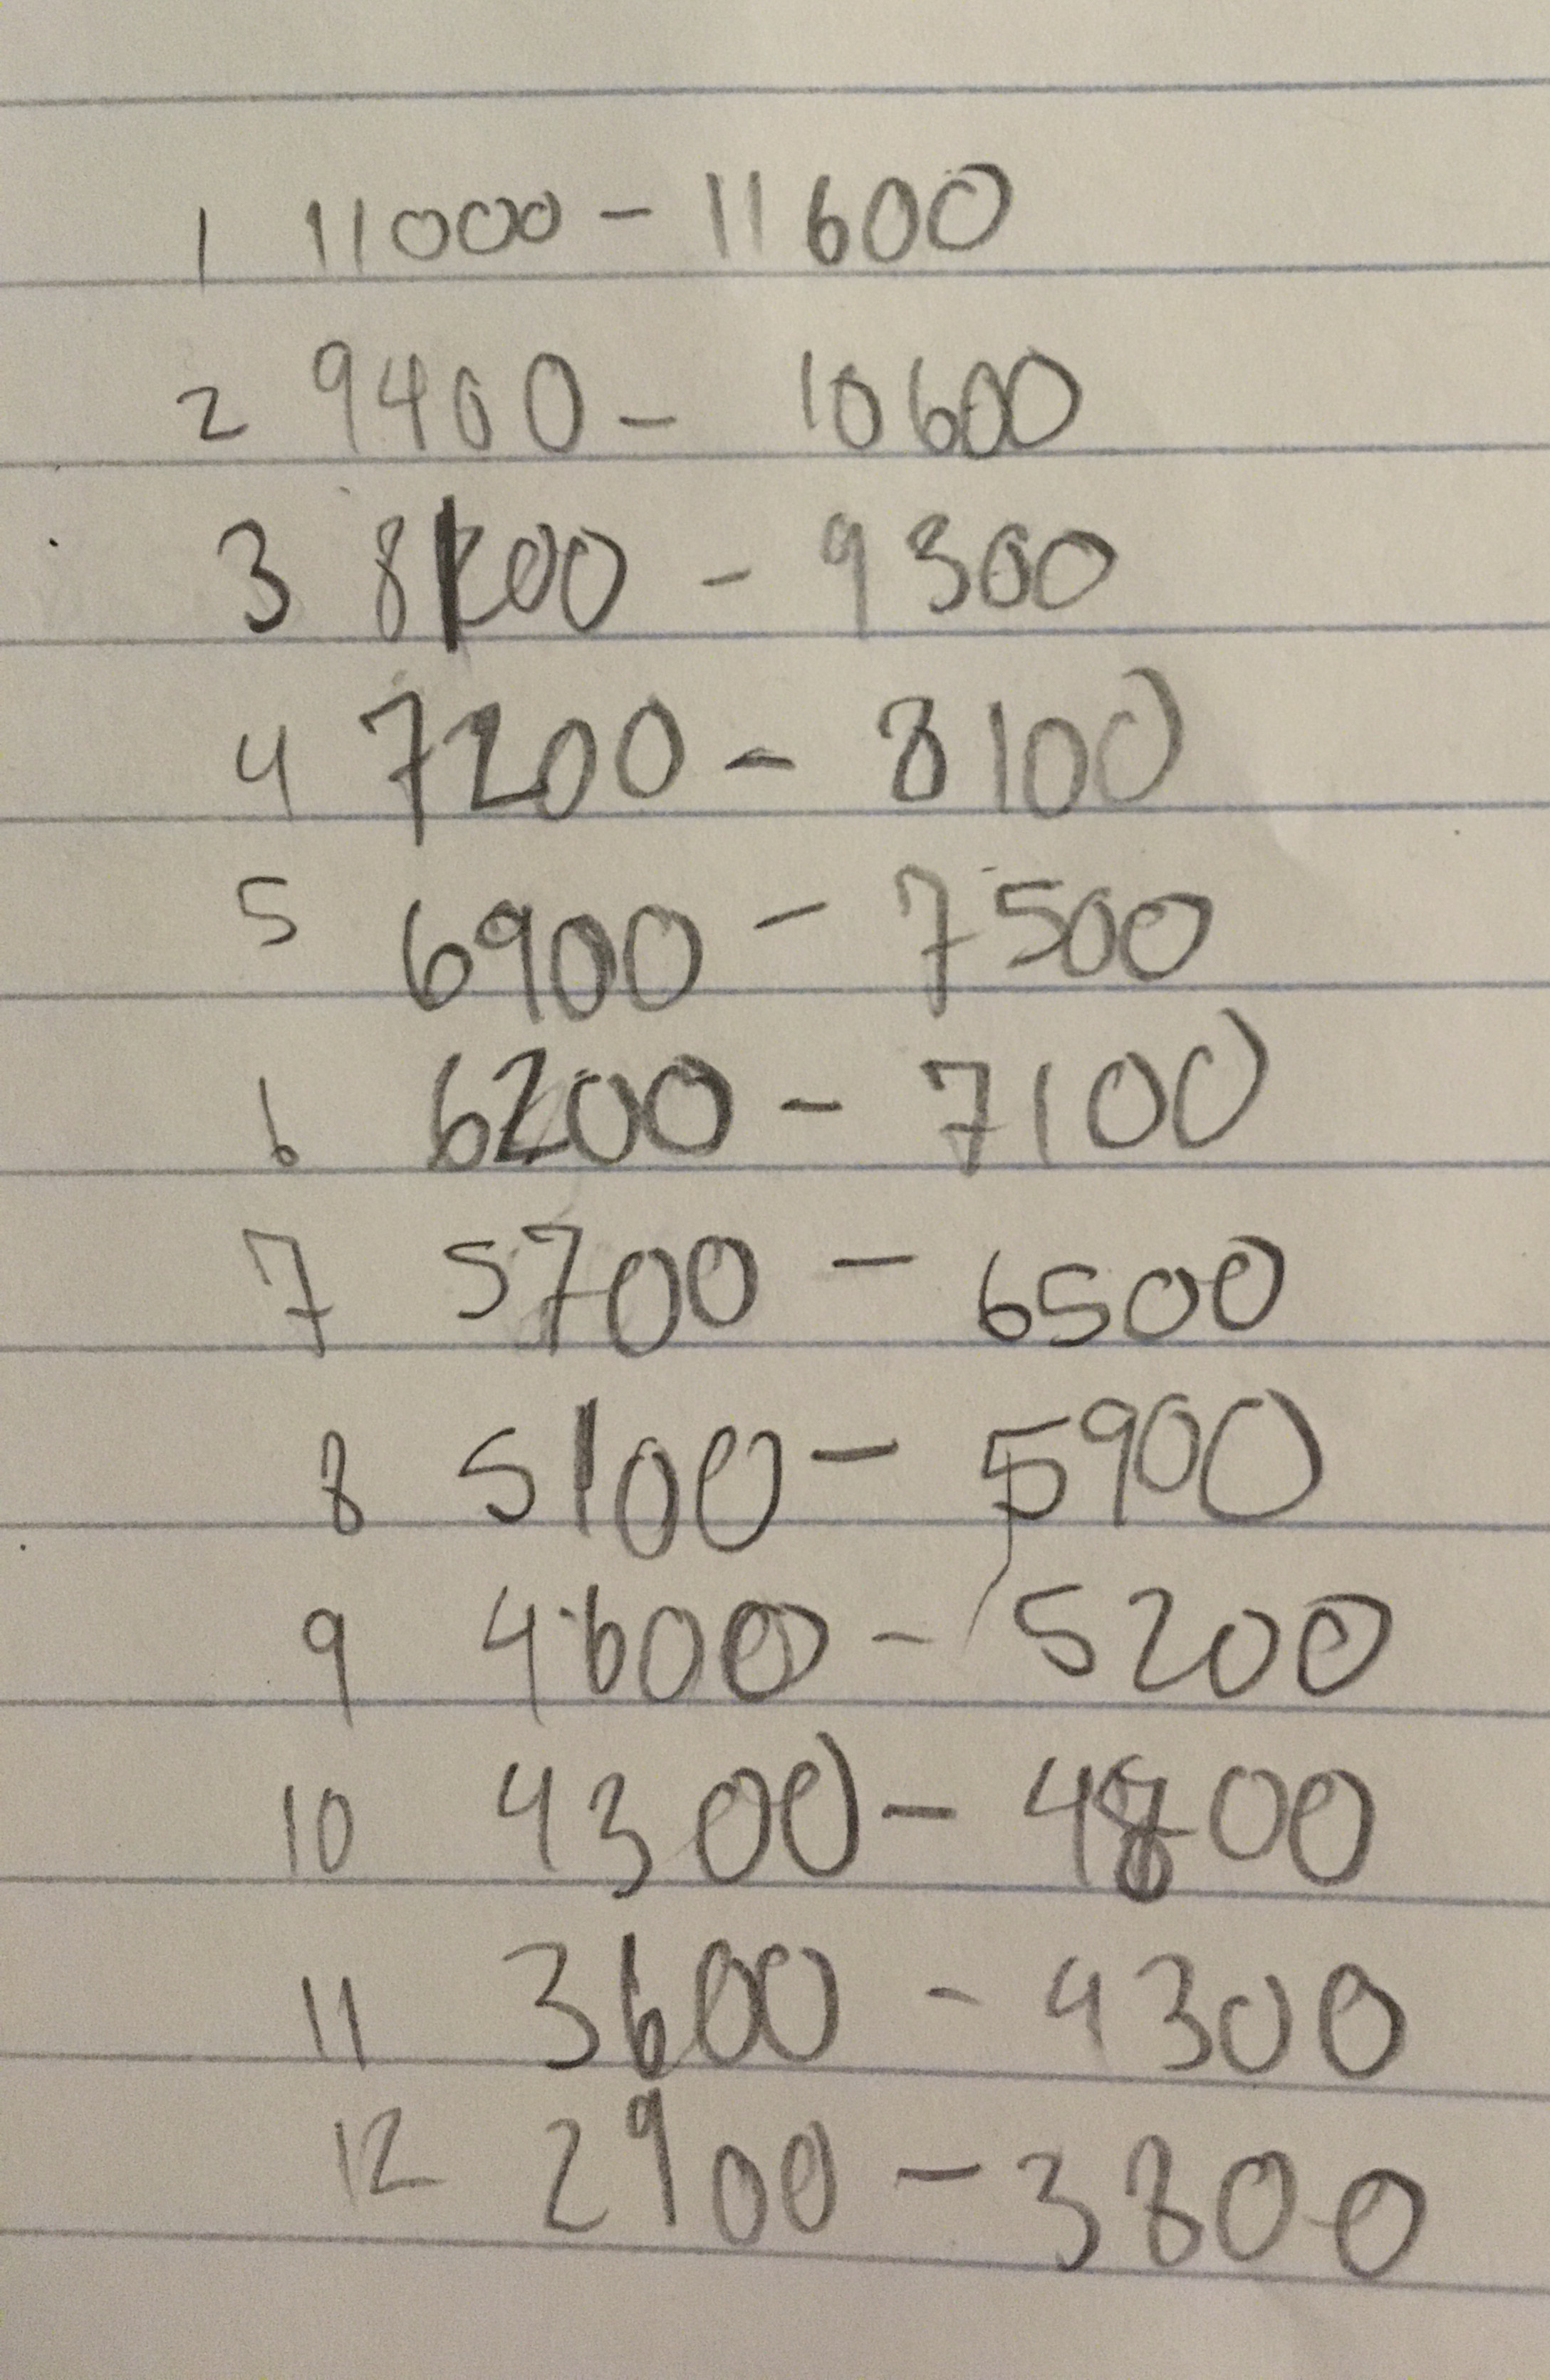 1 11000 - 11600
2 9400 - 10600
3 8100 - 9300
4 7200 - 8100
5 6900 - 7500
6 6200 - 7100
7 5700 - 6500
8 5100 - 5900
9 4600 - 5200
10 4300 - 4800
11 3600 - 4300
12 2900 - 3800